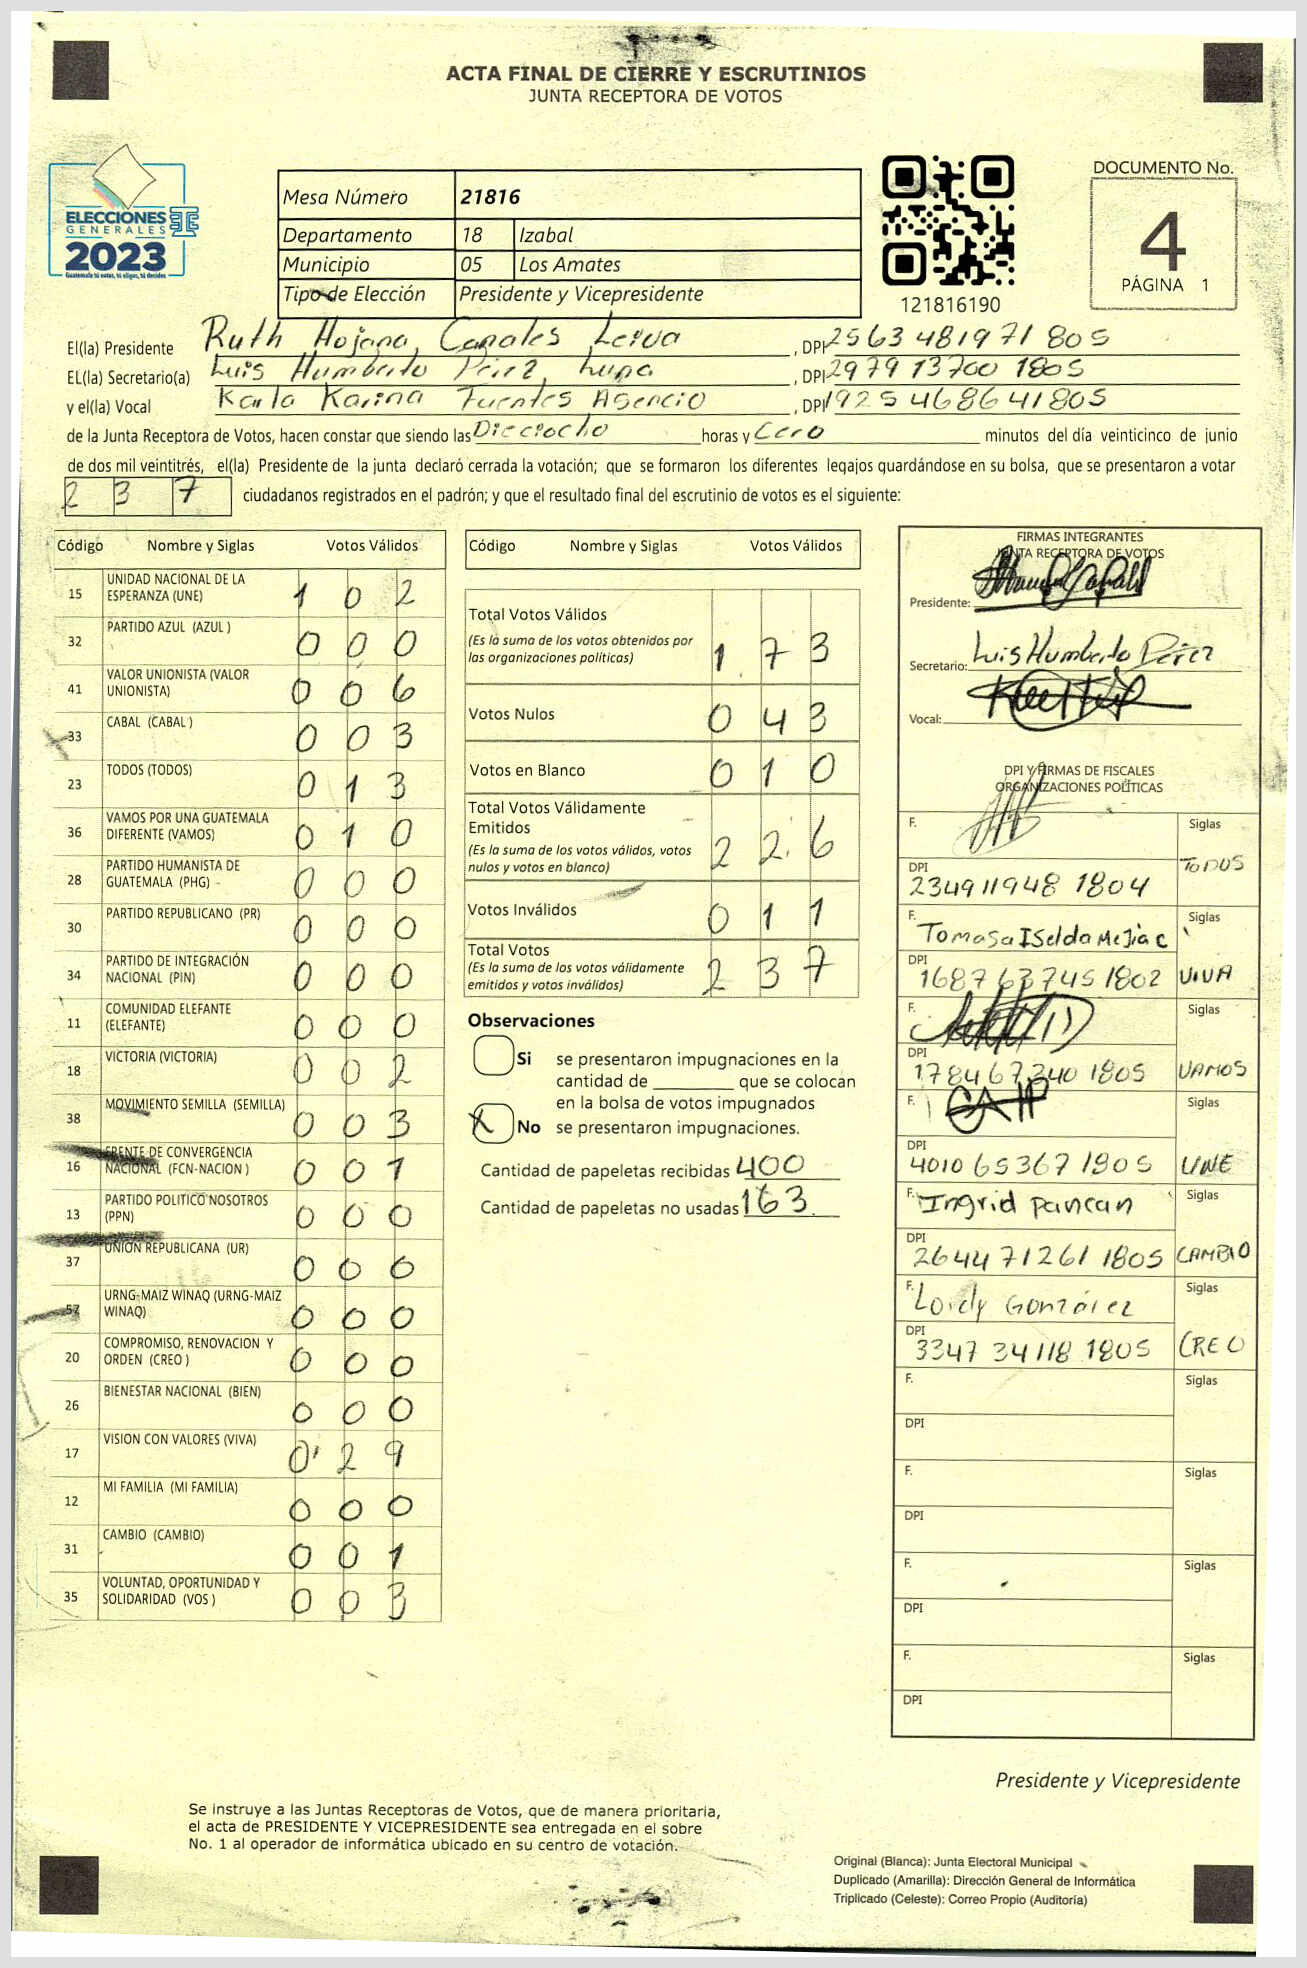 ACTA FINAL DE CIERRE Y ESCRUTINIOS
JUNTA RECEPTORA DE VOTOS
ELECCIONES
GENERALES
2023
Guatemala tú votas, tú eliges, tú decides
Mesa Número 21816
Departamento 18 Izabal
Municipio 05 Los Amates
Tipo de Elección Presidente y Vicepresidente
121816190
DOCUMENTO No.
4
PÁGINA 1
El(la) Presidente Ruth Canales Leiva , DPI 2563 48197 1805
EL(la) Secretario(a) Luis Humberto Pérez Luna , DPI 2979 13700 1805
y el(la) Vocal Karla Karina Fuentes Asencio , DPI 1925 46864 1805
de la Junta Receptora de Votos, hacen constar que siendo las Dieciocho horas y Cero minutos del día veinticinco de junio
de dos mil veintitrés, el(la) Presidente de la junta declaró cerrada la votación; que se formaron los diferentes legajos guardándose en su bolsa, que se presentaron a votar
2 3 7 ciudadanos registrados en el padrón; y que el resultado final del escrutinio de votos es el siguiente:
Código Nombre y Siglas Votos Válidos
15 UNIDAD NACIONAL DE LA ESPERANZA (UNE) 1 0 2
32 PARTIDO AZUL (AZUL ) 0 0 0
41 VALOR UNIONISTA (VALOR UNIONISTA) 0 0 6
33 CABAL (CABAL ) 0 0 3
23 TODOS (TODOS) 0 1 3
36 VAMOS POR UNA GUATEMALA DIFERENTE (VAMOS) 0 1 0
28 PARTIDO HUMANISTA DE GUATEMALA (PHG) 0 0 0
30 PARTIDO REPUBLICANO (PR) 0 0 0
34 PARTIDO DE INTEGRACIÓN NACIONAL (PIN) 0 0 0
11 COMUNIDAD ELEFANTE (ELEFANTE) 0 0 0
18 VICTORIA (VICTORIA) 0 0 2
38 MOVIMIENTO SEMILLA (SEMILLA) 0 0 3
16 FRENTE DE CONVERGENCIA NACIONAL (FCN-NACION ) 0 0 1
13 PARTIDO POLITICO NOSOTROS (PPN) 0 0 0
37 UNION REPUBLICANA (UR) 0 0 0
57 URNG-MAIZ WINAQ (URNG-MAIZ WINAQ) 0 0 0
20 COMPROMISO, RENOVACION Y ORDEN (CREO ) 0 0 0
26 BIENESTAR NACIONAL (BIEN) 0 0 0
17 VISION CON VALORES (VIVA) 0 2 9
12 MI FAMILIA (MI FAMILIA) 0 0 0
31 CAMBIO (CAMBIO) 0 0 1
35 VOLUNTAD, OPORTUNIDAD Y SOLIDARIDAD (VOS ) 0 0 3
Código Nombre y Siglas Votos Válidos
Total Votos Válidos
(Es la suma de los votos obtenidos por
las organizaciones politicas) 1 7 3
Votos Nulos 0 4 3
Votos en Blanco 0 1 0
Total Votos Válidamente
Emitidos
(Es la suma de los votos válidos, votos
nulos y votos en blanco) 2 2 6
Votos Inválidos 0 1 1
Total Votos
(Es la suma de los votos válidamente
emitidos y votos inválidos) 2 3 7
Observaciones
Si se presentaron impugnaciones en la
cantidad de ________ que se colocan
en la bolsa de votos impugnados
X No se presentaron impugnaciones.
Cantidad de papeletas recibidas 400
Cantidad de papeletas no usadas 163
FIRMAS INTEGRANTES
JUNTA RECEPTORA DE VOTOS
Presidente:
Secretario: Luis Humberto Pérez
Vocal:
DPI Y FIRMAS DE FISCALES
ORGANIZACIONES POLÍTICAS
F. Siglas
DPI 234911948 1804 TODOS
F. Tomasa Iselda Mejia C Siglas
DPI 1687 63745 1802 VIVA
F. Siglas
DPI 1784 67340 1805 VAMOS
F. Siglas
DPI 4010 65367 1805 UNE
F. Ingrid Pancan Siglas
DPI 2644 71261 1805 CAMBIO
F. Siglas
DPI 3347 34118 1805 CREO
F. Siglas
DPI
F. Siglas
DPI
F. Siglas
DPI
F. Siglas
DPI
Presidente y Vicepresidente
Se instruye a las Juntas Receptoras de Votos, que de manera prioritaria,
el acta de PRESIDENTE Y VICEPRESIDENTE sea entregada en el sobre
No. 1 al operador de informática ubicado en su centro de votación.
Original (Blanca): Junta Electoral Municipal
Duplicado (Amarilla): Dirección General de Informática
Triplicado (Celeste): Correo Propio (Auditoría)